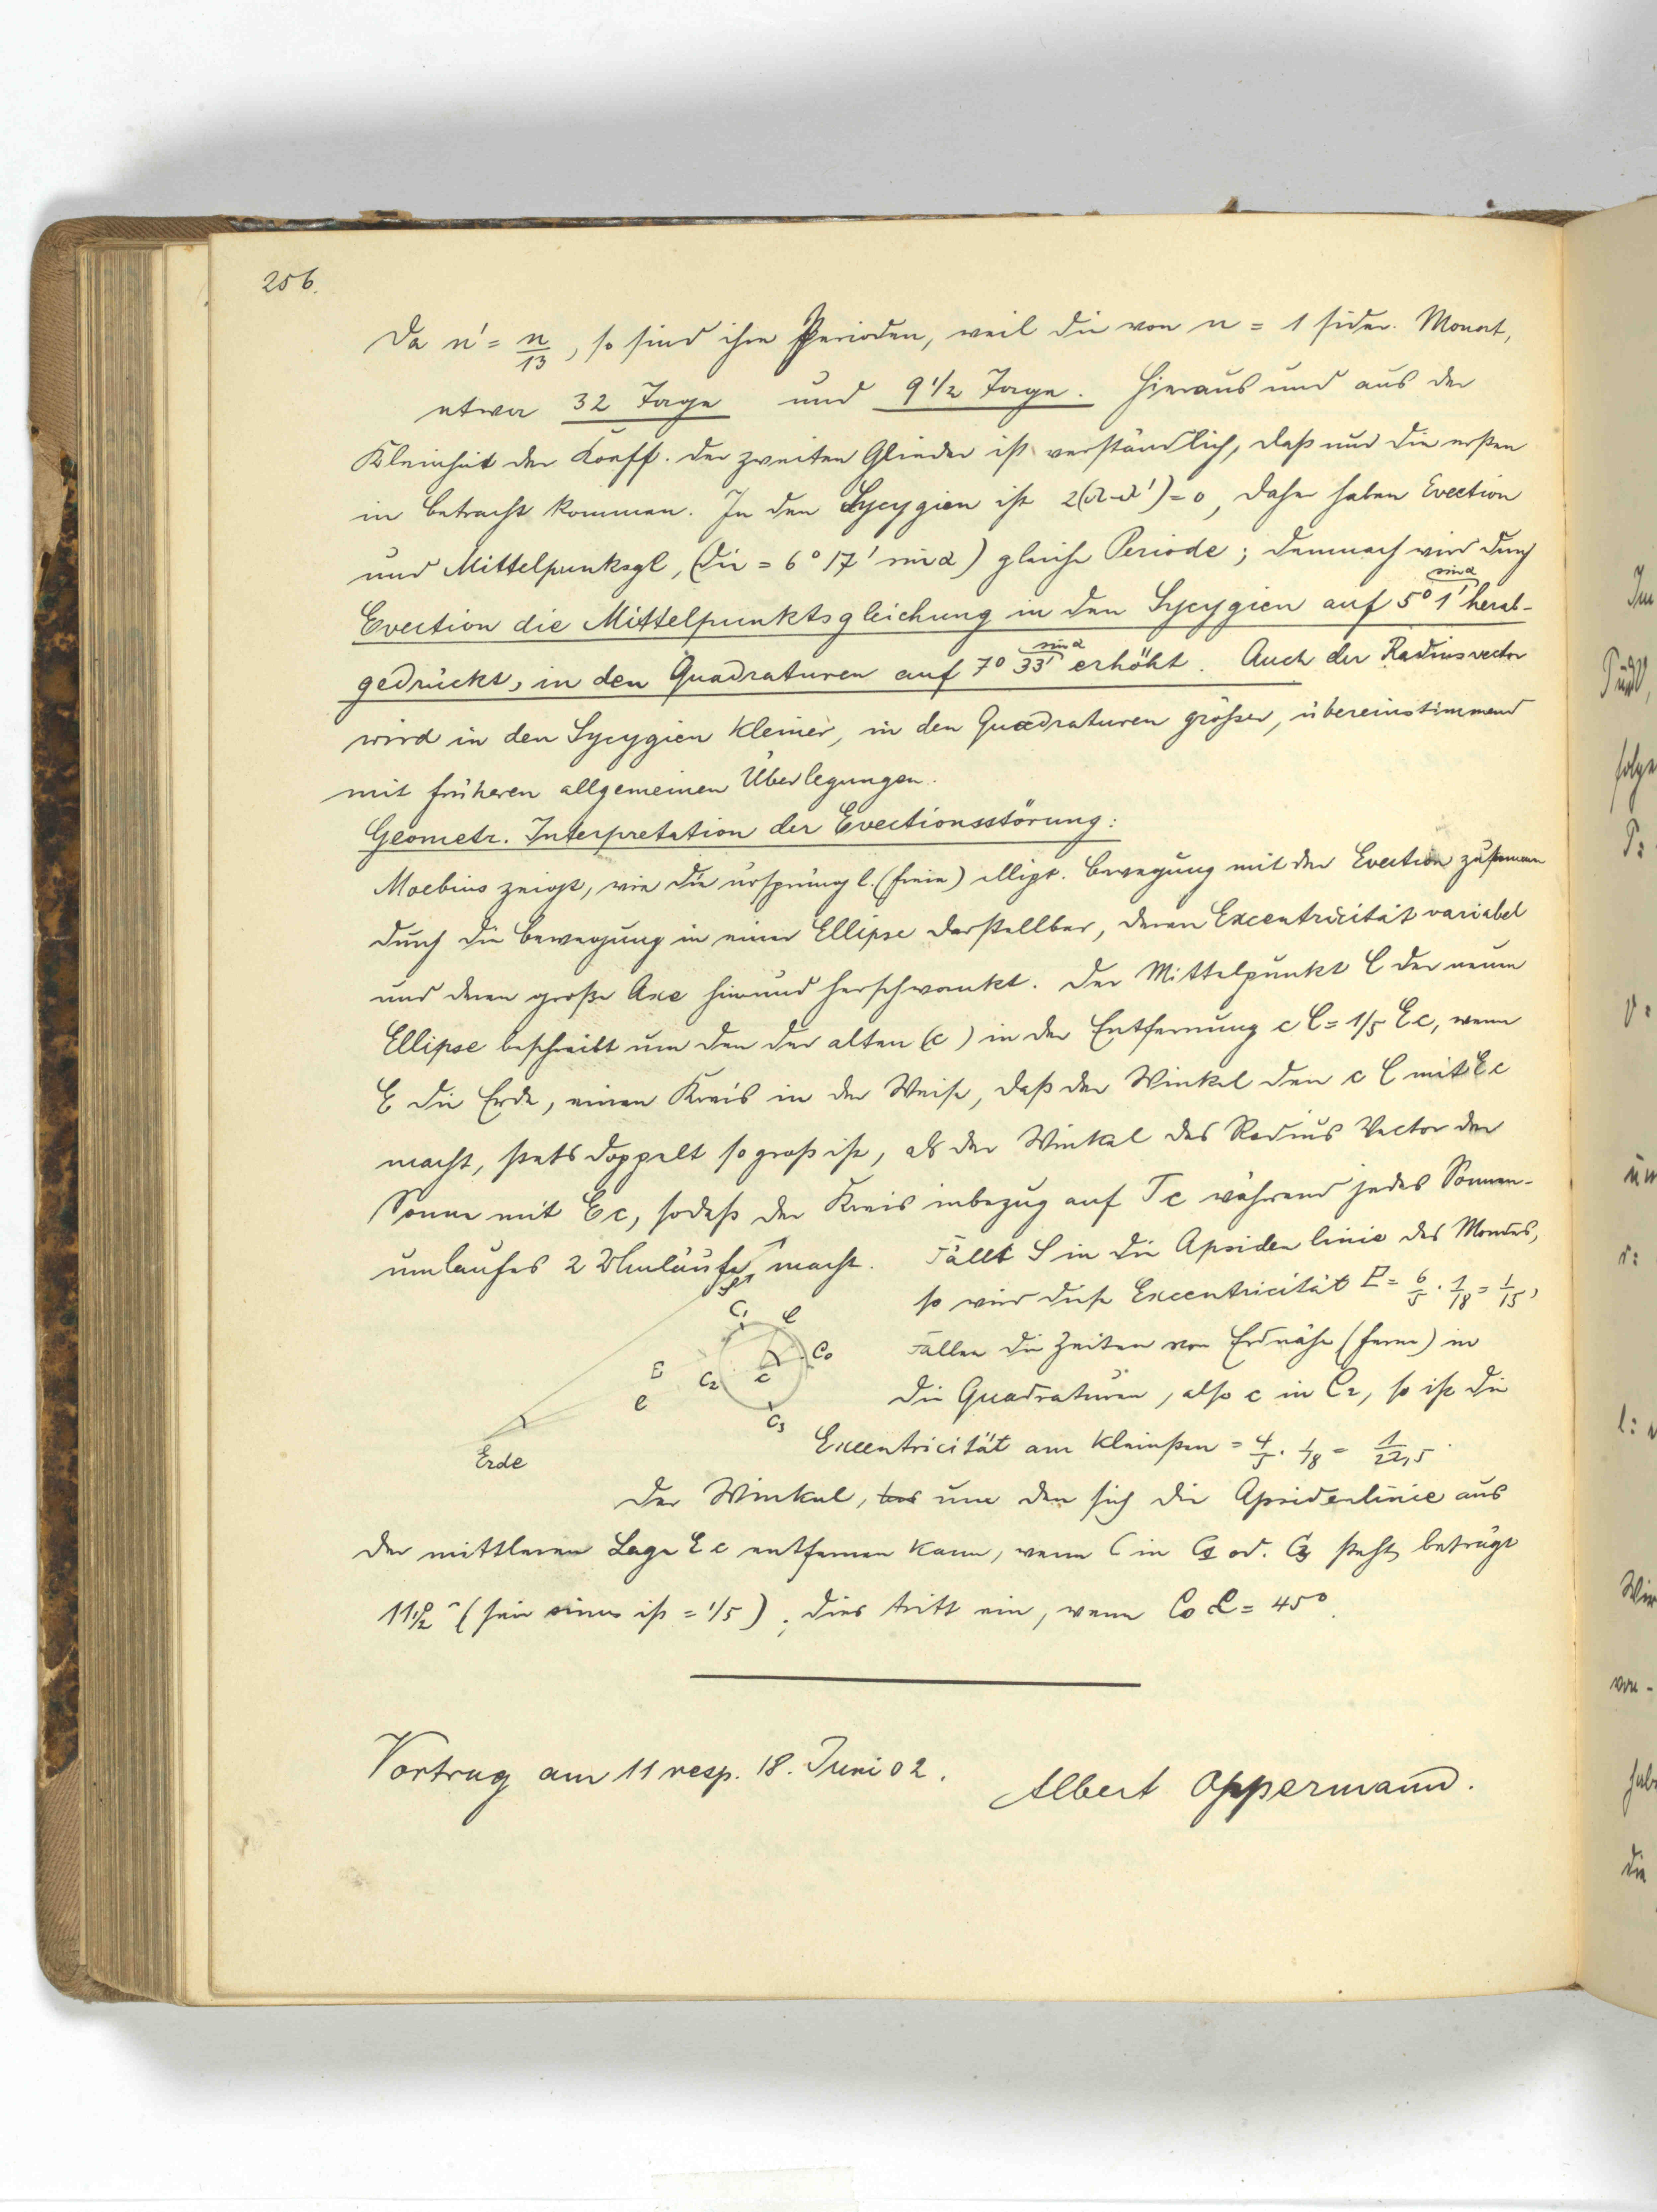 256.
Da n' = n/13, so sind ihre Perioden, weil die von n = 1 sider. Monat,
etwa 32 Tage und 9 1/2 Tage. Hieraus und aus der
Kleinheit der Koeff. der zweiten Glieder ist verständlich, daß nur die ersten
in Betracht kommen. In den Sycygien ist 2(λ-λ')=0, daher haben Evection
und Mittelpunksgl, (die = 6° 17' sin α) gleiche Periode; demnach wird durch
Evection die Mittelpunktsgleichung in den Sycygien auf 5° 1' sin α herab-
gedrückt, in den Quadraturen auf 7° 33' sin α erhöht. Auch der Radiusvector
wird in den Sycygien kleiner, in den Quadraturen größer, übereinstimmend
mit früheren allgemeinen Überlegungen.
Geometr. Interpretation der Evectionsstörung:
Moebius zeigt, wie die ursprüngl. (freie) ellipt. Bewegung mit der Evection zusammen
durch die Bewegung in einer Ellipse darstellbar, deren Excentricität variabel
und deren große Axe hin und herschwankt. Der Mittelpunkt C der neuen
Ellipse beschreibt um den der alten (c) in der Entfernung c C = 1/5 Ec, wenn
E die Erde, einen Kreis in der Weise, daß der Winkel den c C mit Ec
macht, stets doppelt so groß ist, als der Winkel des Radius Vector der
Sonne mit Ec, sodaß der Kreis inbezug auf Tc während jedes Sonnen-
umlaufes 2 Umläufe macht. Fällt S in die Apsidenlinie des Mondes,
so wird diese Excentricität E = 6/5 · 1/18 = 1/15,
Fallen die Zeiten von Erdnähe (ferne) in
die Quadraturen, also c in C2, so ist die
Excentricität am kleinsten = 4/5 · 1/18 = 1/22,5.
C1 C C0 c C2 C3
E
e
Erde
Der Winkel, um den sich die Apsidenlinie aus
der mittleren Lage Ec entfernen kann, wenn C in C1 od. C3 steht, beträgt
11 1/2° (sein sinus ist = 1/5); dies tritt ein, wenn C0 C = 45°.
Vortrag am 11 resp. 18. Juni 02.
Albert Oppermann.